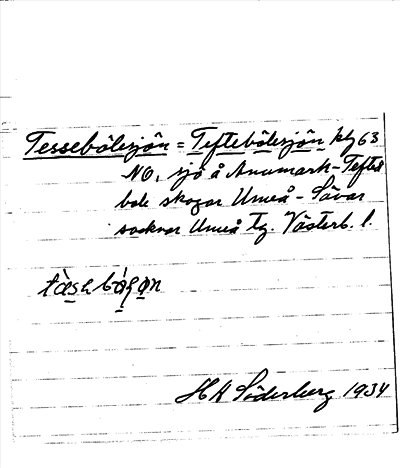 Tessebölesjön = Teftebölesjön kbl 63
NO, sjö å Anumark-Tefte
böle skogar Umeå - Sävar
socknar Umeå tg. Västerb. l.
H A Söderberg 1934